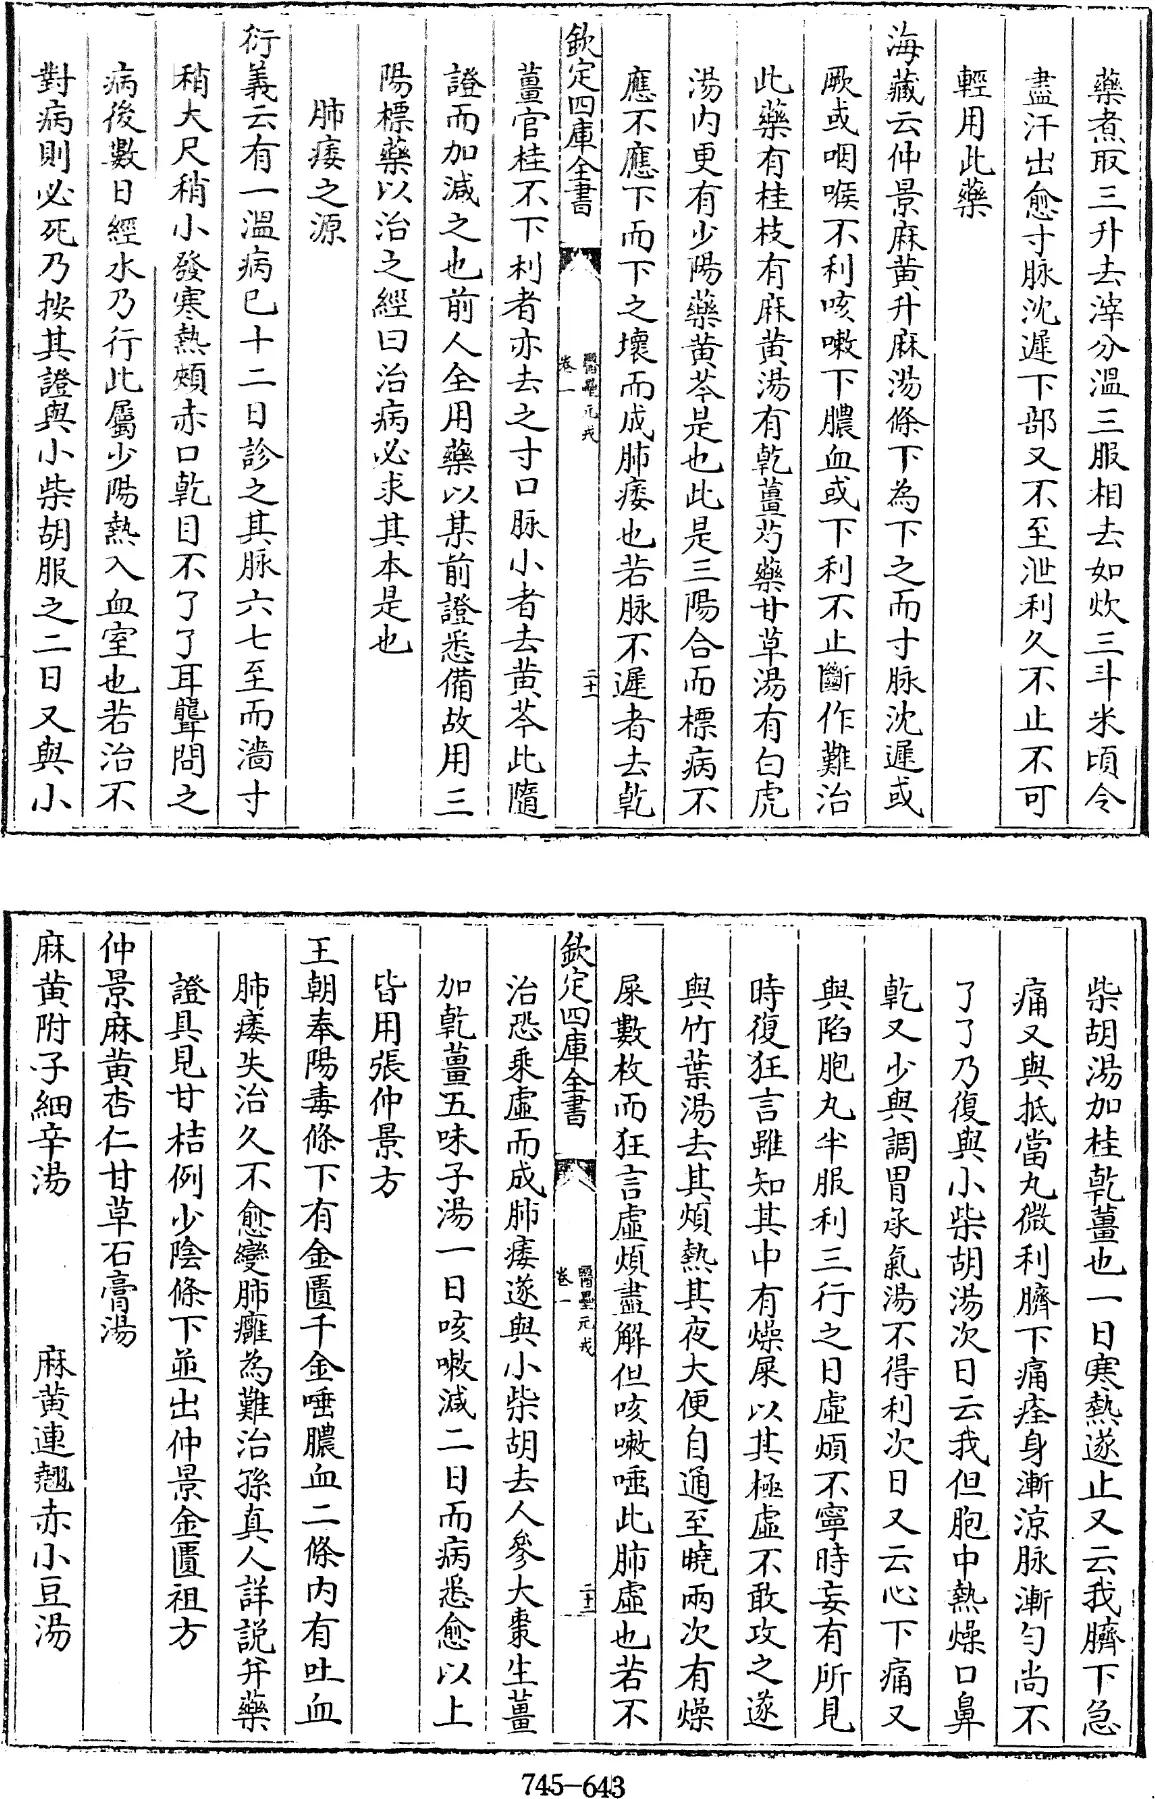 藥煮取三升去滓分溫三服相去如炊三斗米頃令
盡汗出愈寸脉沈遲下部又不至泄利久不止不可
輕用此藥
海藏云仲景麻黄升麻湯條下為下之而寸脉沈遲或
厥或咽喉不利咳嗽下膿血或下利不止斷作難治
此藥有桂枝有麻黄湯有乾薑芍藥甘草湯有白虎
湯内更有少陽藥黄芩是也此是三陽合而標病不
應不應下而下之壞而成肺痿也若脉不遲者去乾
欽定四庫全書
醫壘元戎
卷一
二十一
薑官桂不下利者亦去之寸口脉小者去黄芩此隨
證而加減之也前人全用藥以某前證悉備故用三
陽標藥以治之經曰治病必求其本是也
肺痿之源
衍義云有一溫病已十二日診之其脉六七至而濇寸
稍大尺稍小發寒熱頰赤口乾目不了了耳聾問之
病後數日經水乃行此屬少陽熱入血室也若治不
對病則必死乃按其證與小柴胡服之二日又與小
柴胡湯加桂乾薑也一日寒熱遂止又云我臍下急
痛又與抵當丸微利臍下痛痊身漸涼脉漸勻尚不
了了乃復與小柴胡湯次日云我但胞中熱燥口鼻
乾又少與調胃承氣湯不得利次日又云心下痛又
與陷胞丸半服利三行之日虛煩不寧時妄有所見
時復狂言雖知其中有燥屎以其極虛不敢攻之遂
與竹葉湯去其煩熱其夜大便自通至曉兩次有燥
屎數枚而狂言虛煩盡解但咳嗽唾此肺虛也若不
欽定四庫全書
醫壘元戎
卷一
二十二
治恐乘虛而成肺痿遂與小柴胡去人參大棗生薑
加乾薑五味子湯一日咳嗽減二日而病悉愈以上
皆用張仲景方
王朝奉陽毒條下有金匱千金唾膿血二條内有吐血
肺痿失治久不愈變肺癰為難治孫真人詳説并藥
證具見甘桔例少陰條下並出仲景金匱祖方
仲景麻黄杏仁甘草石膏湯
麻黄附子細辛湯 麻黄連翹赤小豆湯
745-643